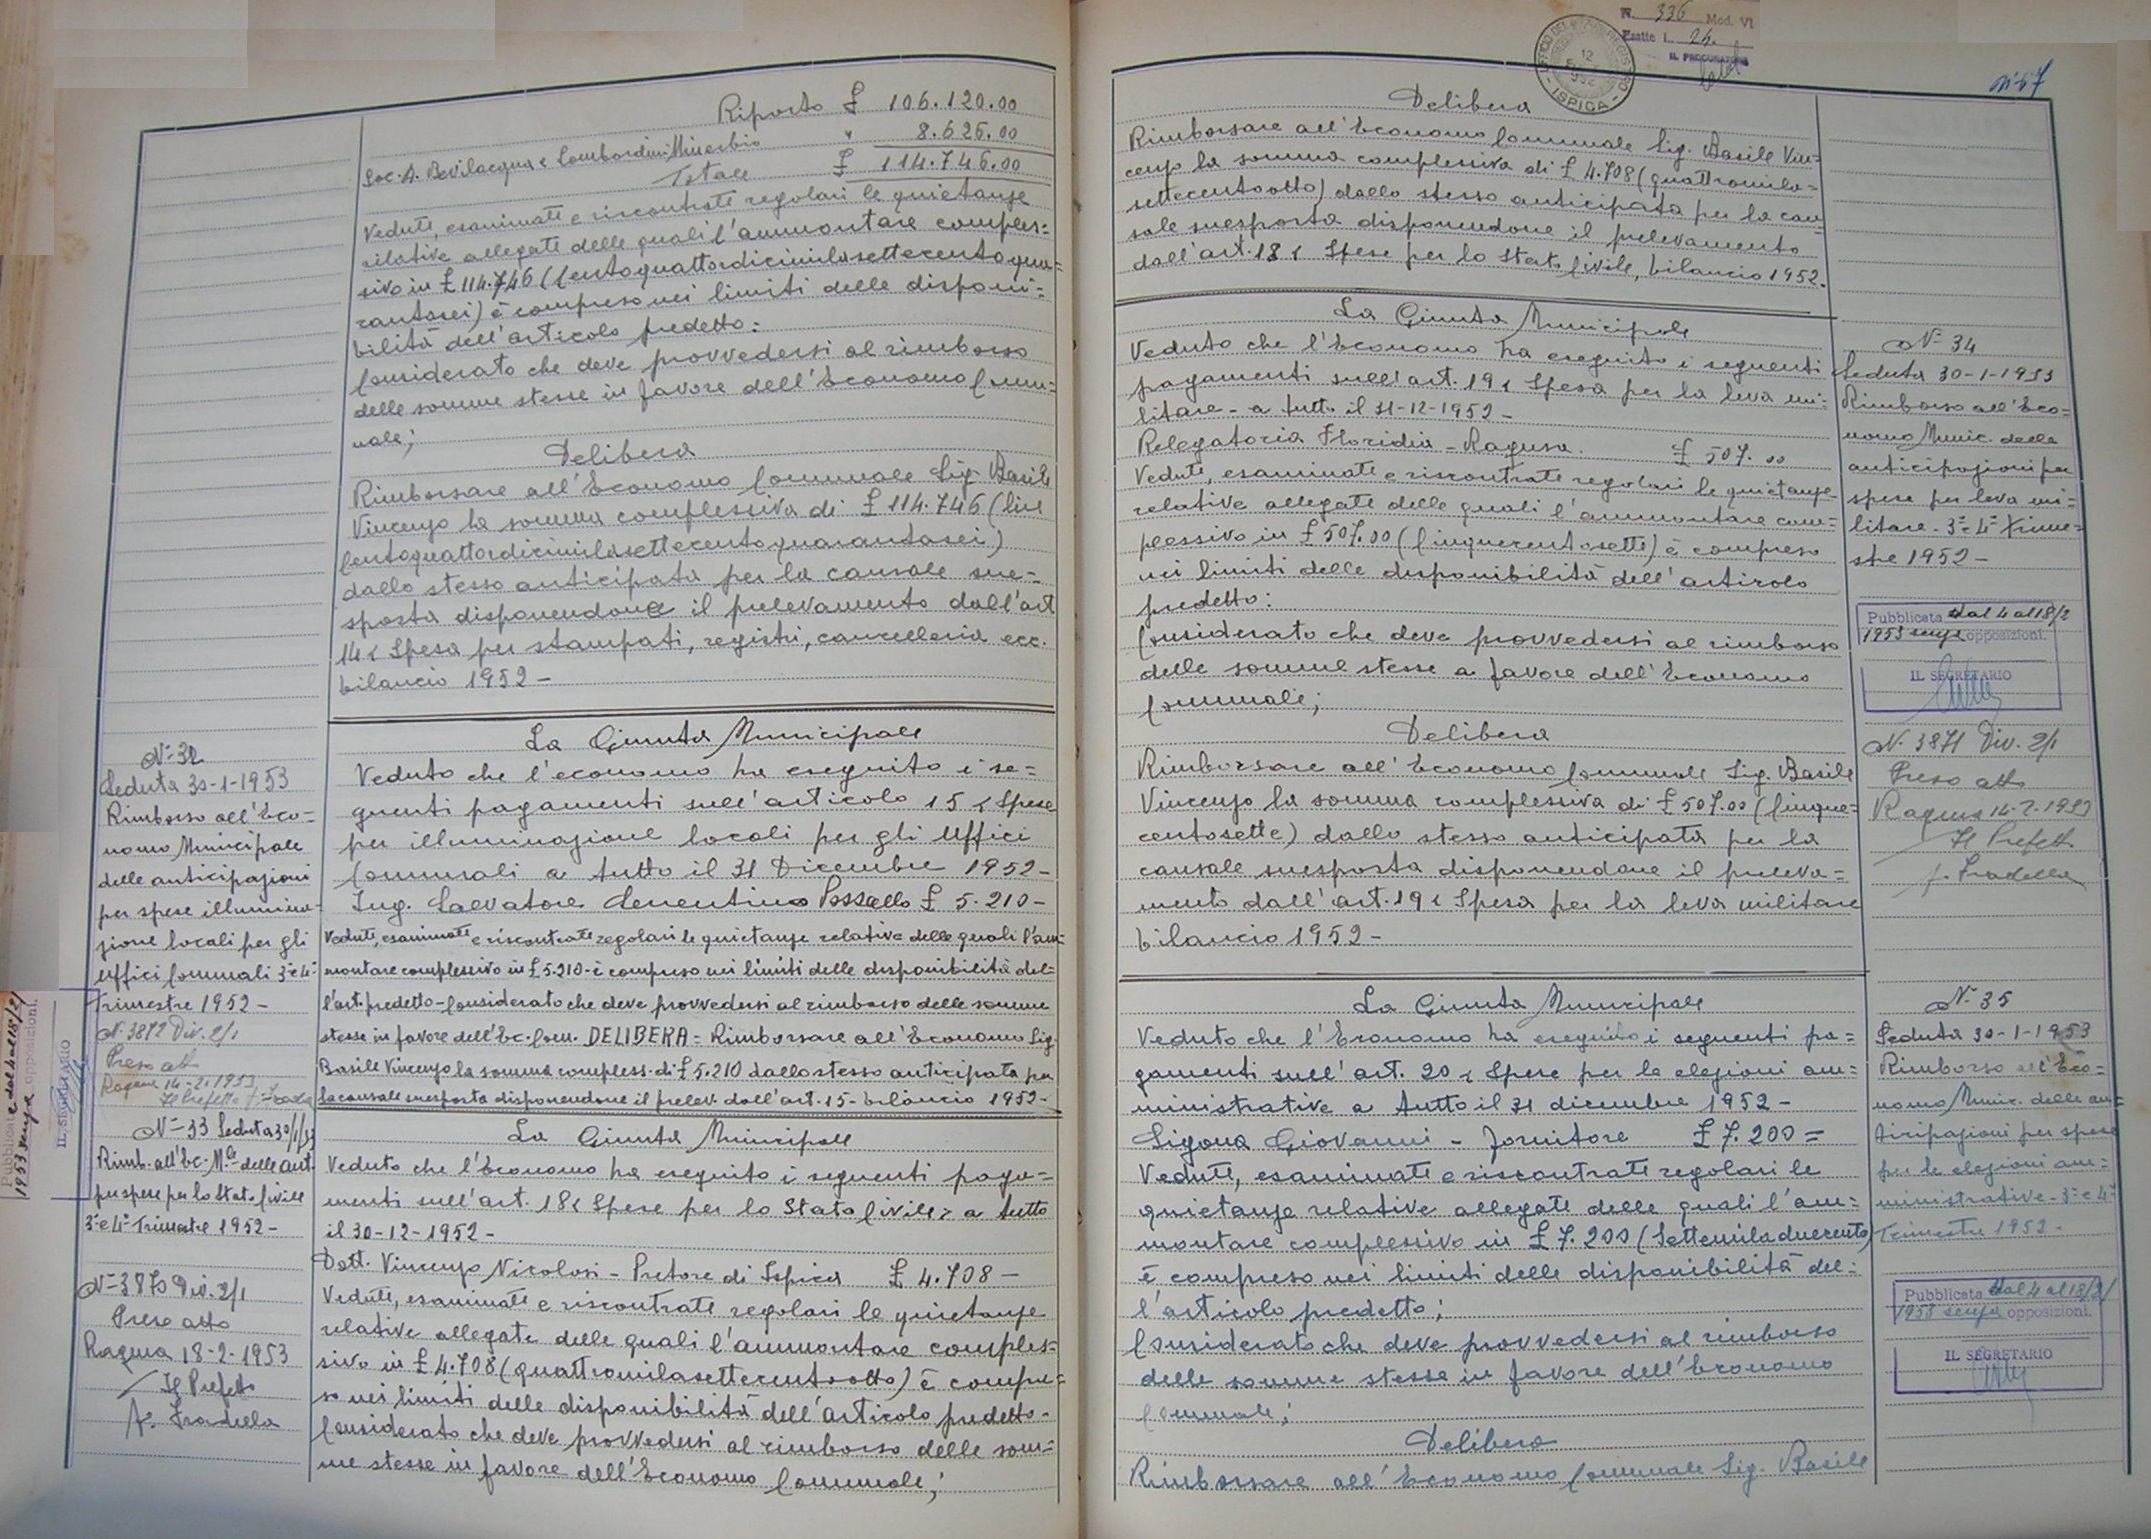 Riporto £ 106.120.00
Soc. A. Bevilacqua e Lombardini Minerbio " 8.626.00
Totale £ 114.746.00
Vedute, esaminate e riscontrate regolari le quietanze
relative allegate delle quali l'ammontare comples=
sivo in £ 114.746 (Centoquattordicimilasettecentoqua=
rantasei) è compreso nei limiti delle disponi=
bilità dell'articolo predetto:
Considerato che deve provvedersi al rimborso
delle somme stesse in favore dell'Economo Comu=
nale;
Delibera
Rimborsare all'Economo Comunale Sig. Basile
Vincenzo la somma complessiva di £ 114.746 (lire
Centoquattordicimilasettecentoquarantasei)
dallo stesso anticipata per la causale sue=
sposta disponendone il prelevamento dall'art
14 < Spesa per stampati, registri, cancelleria ecc.
bilancio 1952 -
N= 32
Seduta 30-1-1953
Rimborso all'Eco=
nomo Municipale
delle anticipazioni
per spese illumina=
zione locali per gli
Uffici Comunali 3° e 4°
Trimestre 1952 -
N. 3872 Div. 2/1
Preso atto
Ragusa 14-2-1953
Il Prefetto
La Giunta Municipale
Veduto che l'economo ha eseguito i se=
guenti pagamenti sull'articolo 15 < Spese
per illuminazione locali per gli Uffici
Comunali a tutto il 31 Dicembre 1952 -
Ing. Salvatore £ 5.210 -
Vedute, esaminate e riscontrate regolari le quietanze relative delle quali l'am=
montare complessivo in £ 5.210 - è compreso nei limiti delle disponibilità del=
l'art. predetto - Considerato che deve provvedersi al rimborso delle somme
stesse in favore dell'Ec. Com. DELIBERA = Rimborsare all'Economo Sig.
Basile Vincenzo la somma compless. di £ 5.210 dallo stesso anticipata per
la causale suesposta disponendone il prelev. dall'art. 15 - bilancio 1952 -
Pubblicata dal 4 al 18/2/
1953 senza opposizioni.
IL SEGRETARIO
N= 33 Seduta 30/1/53
Rimb. all'Ec. M.le delle ant.
per spese per lo Stato Civile
3° e 4° Trimestre 1952 -
N= 3870 Div. 2/1
Preso atto
Ragusa 18-2-1953
Il Prefetto
f° Fradella
La Giunta Municipale
Veduto che l'Economo ha eseguito i seguenti paga=
menti sull'art. 18 < Spese per lo Stato Civile > a tutto
il 30-12-1952 -
Dott. Vincenzo Nicolosi - Pretore di Ispica £ 4.708 -
Vedute, esaminate e riscontrate regolari le quietanze
relative allegate delle quali l'ammontare comples=
sivo in £ 4.708 (quattromilasettecentootto) è compre=
so nei limiti delle disponibilità dell'articolo predetto -
Considerato che deve provvedersi al rimborso delle som=
me stesse in favore dell'Economo Comunale;
N. 336 Mod. VI
Esatte L. 24.
IL PROCURATORE
12
ISPICA
Delibera
Rimborsare all'Economo Comunale Sig. Basile Vin=
cenzo la somma complessiva di £ 4.708 (quattromila=
settecentootto) dallo stesso anticipata per la cau=
sale suesposta disponendone il prelevamento
dall'art. 18 < Spese per lo Stato Civile, bilancio 1952.
La Giunta Municipale
Veduto che l'Economo ha eseguito i seguenti
pagamenti sull'art. 19 < Spesa per la leva mi=
litare - a tutto il 31-12-1952 -
Relegatoria Floridia - Ragusa. £ 507.00
Vedute, esaminate e riscontrate regolari le quietanze
relative allegate delle quali l'ammontare com=
plessivo in £ 507.00 (Cinquecentosette) è compreso
nei limiti delle disponibilità dell'articolo
predetto:
Considerato che deve provvedersi al rimborso
delle somme stesse a favore dell'Economo
Comunale;
Delibera
Rimborsare all'Economo Comunale Sig. Basile
Vincenzo la somma complessiva di £ 507.00 (Cinque=
centosette) dallo stesso anticipata per la
causale suesposta disponendone il preleva=
mento dall'art. 19 < Spesa per la leva militare
bilancio 1952 -
N= 34
Seduta 30-1-1953
Rimborso all'Eco=
nomo Munic. delle
anticipazioni per
spese per leva mi=
litare - 3° e 4° trime=
stre 1952 -
Pubblicata dal 4 al 18/2
1953 senza opposizioni.
IL SEGRETARIO
N. 3871 Div. 2/1
Preso atto
Ragusa 14-2-1953
Il Prefetto
f. Fradella
La Giunta Municipale
Veduto che l'Economo ha eseguito i seguenti pa=
gamenti sull'art. 20 < Spese per le elezioni am=
ministrative a tutto il 31 dicembre 1952 -
Sigona Giovanni - fornitore £ 7.200 =
Vedute, esaminate e riscontrate regolari le
quietanze relative allegate delle quali l'am=
montare complessivo in £ 7.200 (Settemiladuecento)
è compreso nei limiti delle disponibilità del=
l'articolo predetto;
Considerato che deve provvedersi al rimborso
delle somme stesse in favore dell'Economo
Comunale;
Delibera
Rimborsare all'Economo Comunale Sig. Basile
N= 35
Seduta 30-1-1953
Rimborso all'Eco=
nomo Munic. delle an=
ticipazioni per spese
per le elezioni am=
ministrative - 3° e 4°
Trimestre 1952 -
Pubblicata dal 4 al 18/2/
1953 senza opposizioni.
IL SEGRETARIO